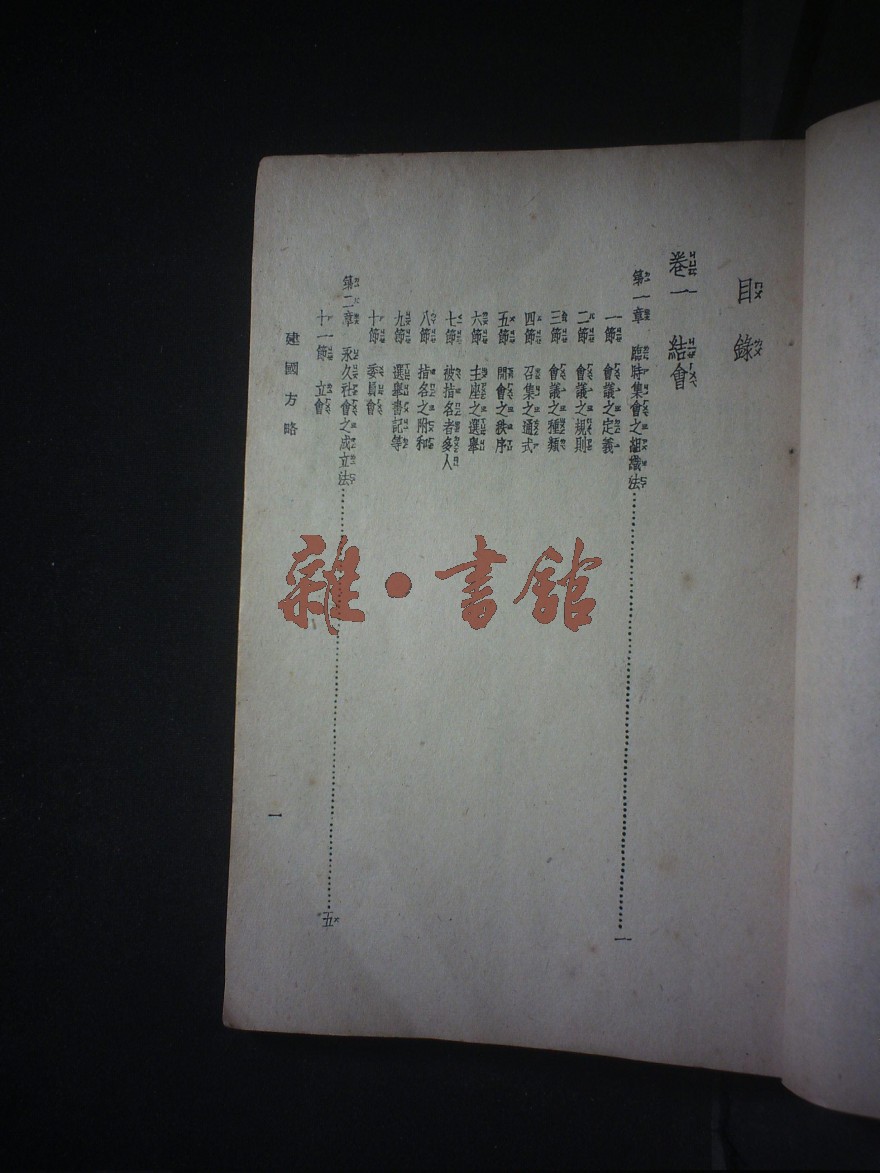 目錄
卷一 結會
第一章 臨時集會之組織法……一
一節 會議之定義
二節 會議之規則
三節 會議之種類
四節 召集之通式
五節 開會之秩序
六節 主座之選舉
七節 被指名者多人
八節 指名之附和
九節 選舉書記等
十節 委員會
第二章 永久社會之成立法……五
十一節 立會
建國方略
一
雜·書館